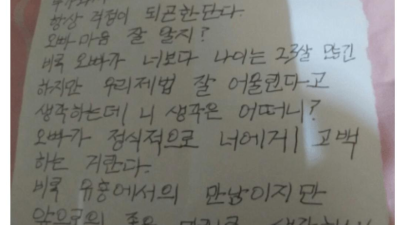 항상 걱정이 되곤한단다.
오빠마음 잘 알지?
비록 오빠가 너보다 나이는 23살 많긴
하지만 우리제법 잘 어울린다고
생각하는데 니 생각은 어떠니?
오빠가 정식적으로 너에게 고백
하는 거란다.
비록 유흥에서의 만남이지만
앞으로의 좋은